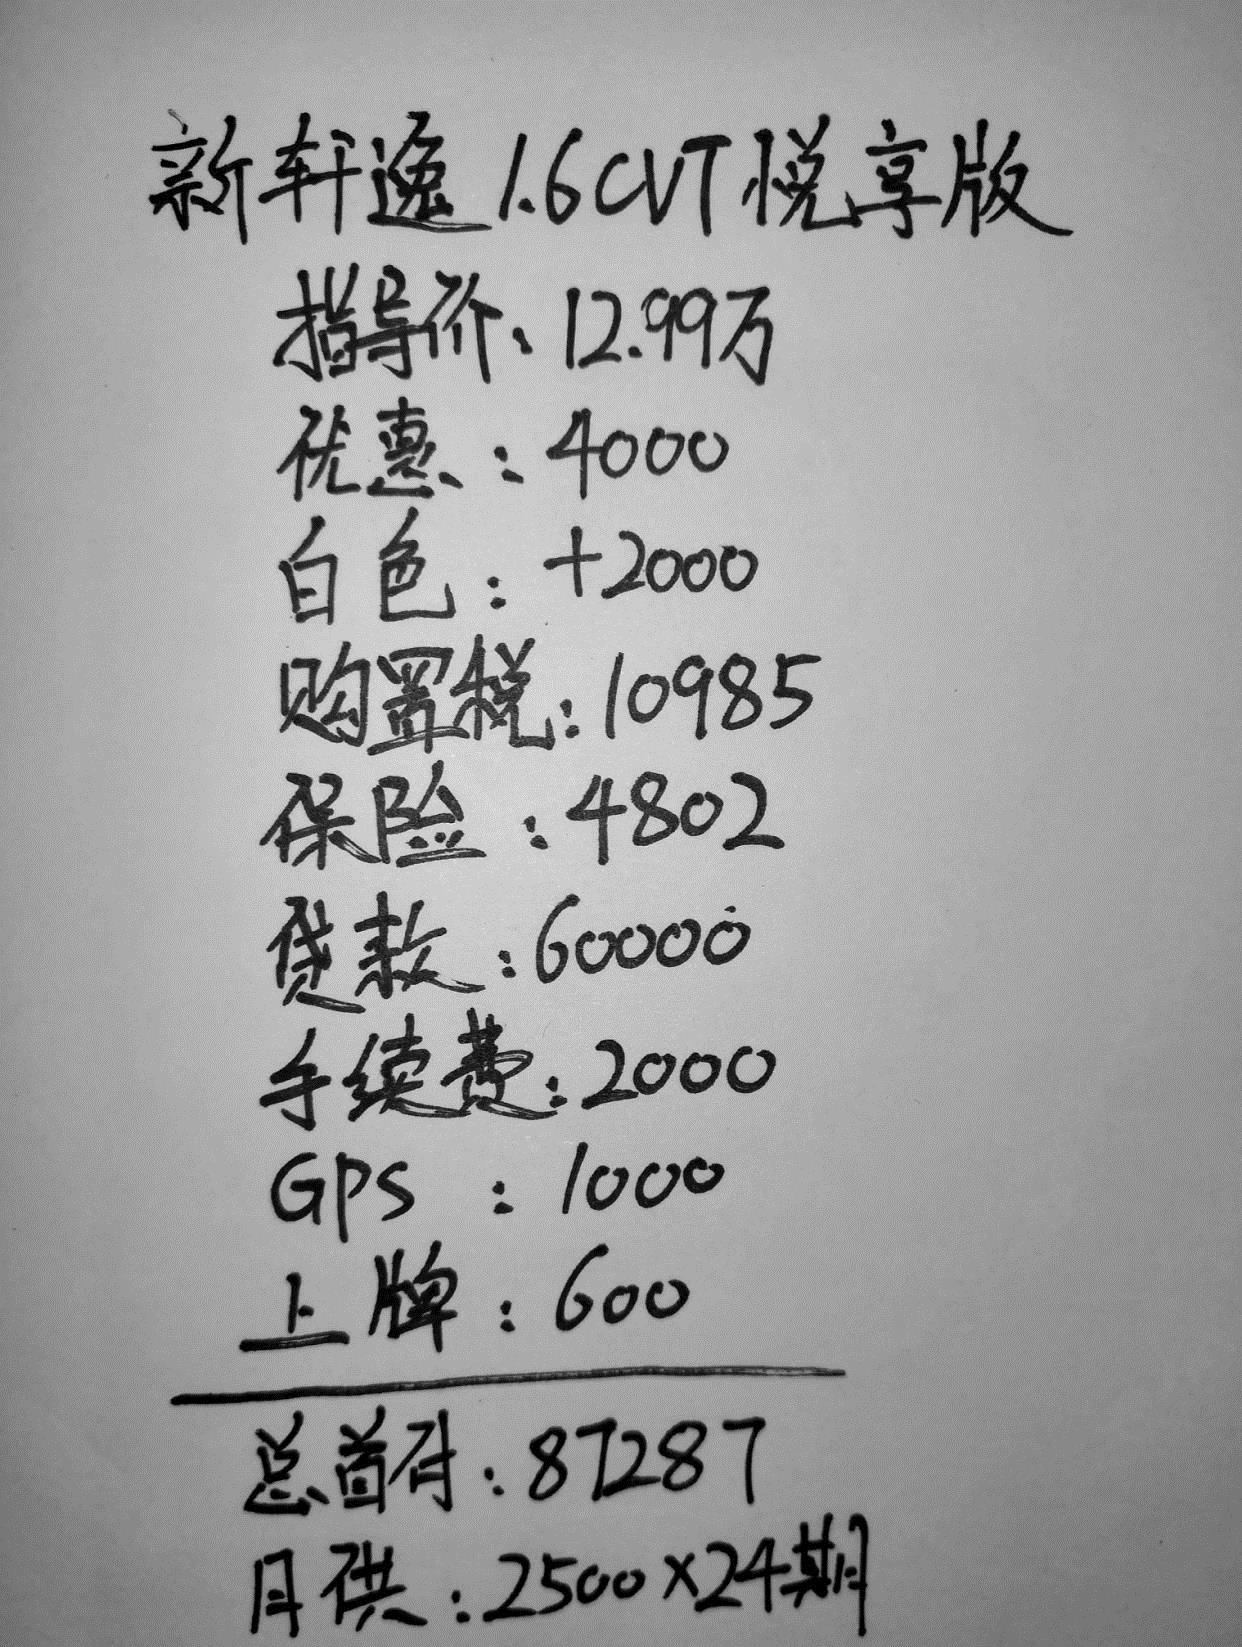 新轩逸1.6CVT悦享版
指导价:12.99万
优惠:4000
白色:+2000
购置税:10985
保险:4802
贷款:60000
手续费:2000
GPS:1000
上牌:600
总首付:87287
月供:2500×24期